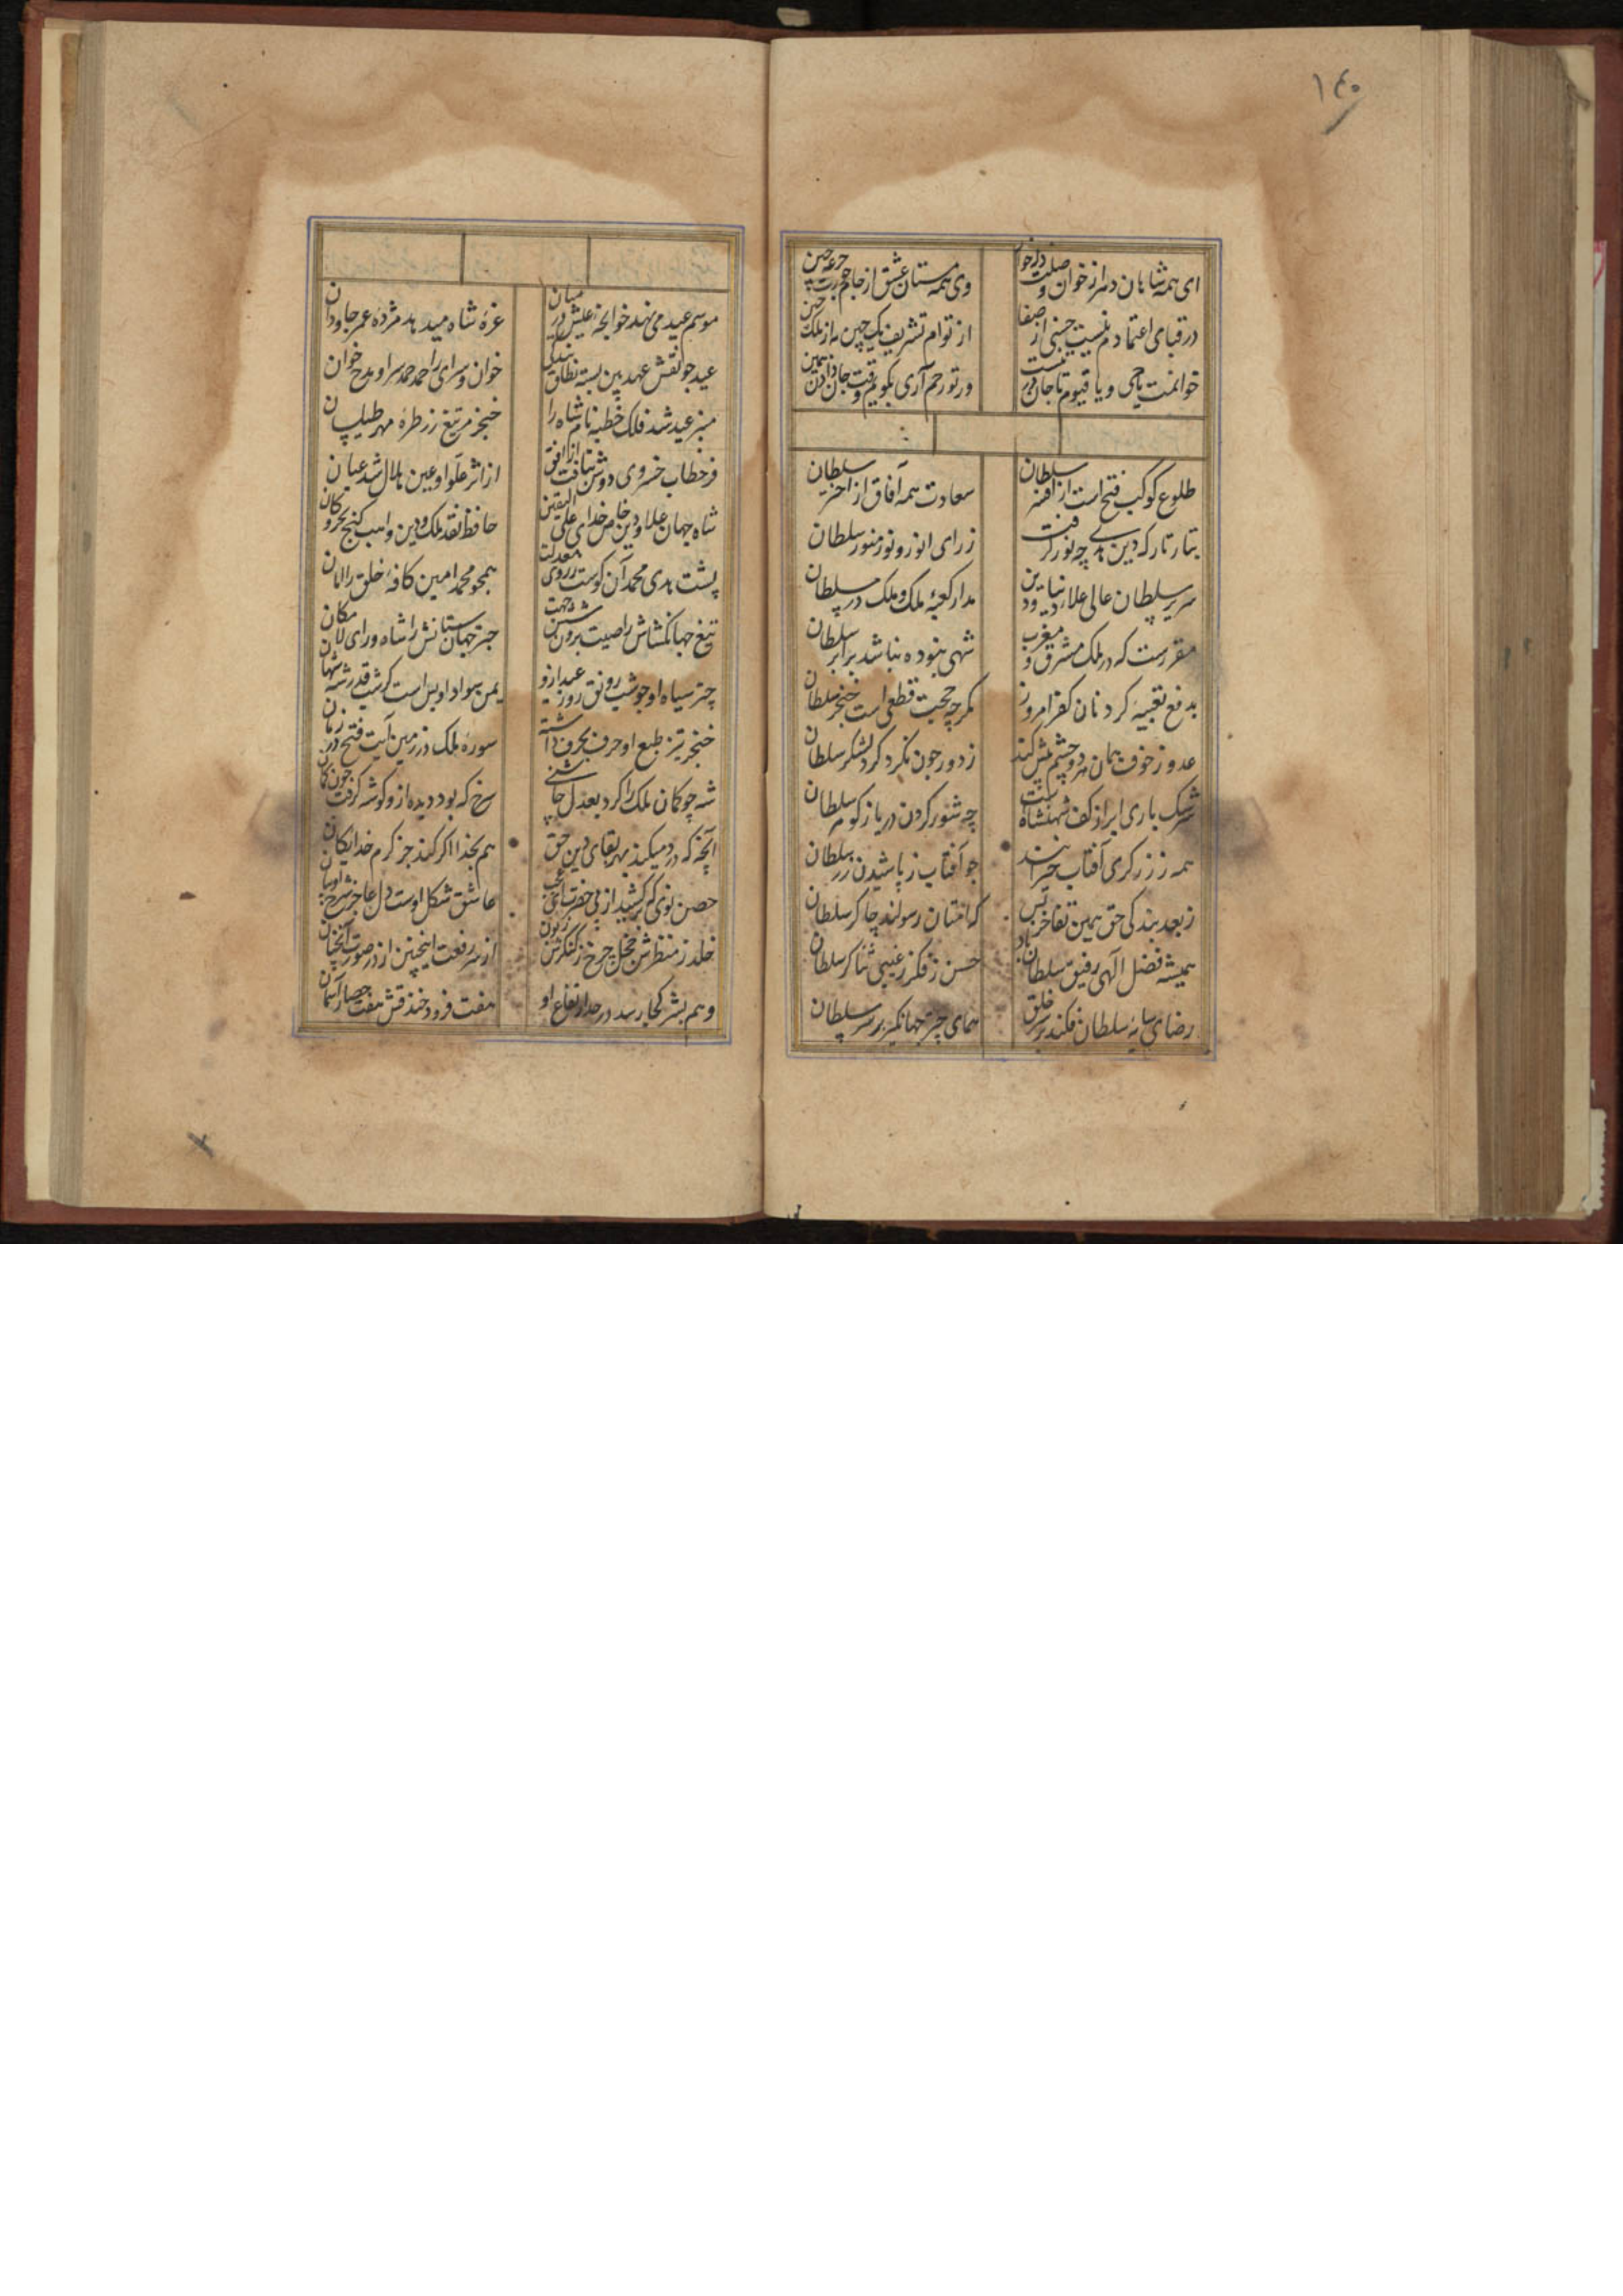 ۱۴۰
ای همه شاهان دهر از خوان وصلت ذله خوار
وی همه مستان عشق از جام جم
در قبای اعتمادم نیست جنبی از صفا
از توام تشریف یک چین به از ملک چین
خوانمت یا حی و یا قیوم تا جان در تنست
ور تو رحم آری بگویم وقت جان دادن همین
طلوع کوکب فتح است از افسر سلطان
سعادت همه آفاق از اختر سلطان
تبارتار که دین هدی چه نور گرفت
ز رای انور و نور منور سلطان
سریر سلطان عالی علاء دنیا و دین
مدار کعبه ملک و ملک در سلطان
مقررست که در ملک مشرق و مغرب
شهی نبوده نباشد برابر سلطان
بدفع تعبیه کردنان کفر امروز
مگر چه حجت قطعی است خنجر سلطان
عدو ز خوف همان هر دو چشم پیش کند
ز دور چون نگرد گرد لشکر سلطان
سرشک باری ابر از کف شهنشاه است
چه شور کردن دریا ز گوهر سلطان
همه ز زرگری آفتاب خیرانند
چو آفتاب ز پاشیدن زر سلطان
ز بعد بندگی حق همین تفاخر بس
که امتان رسولند چاکر سلطان
همیشه فضل الهی رفیق سلطان باد
حسن ز فکر غیبی ثناگر سلطان
رضای سایه سلطان فکند بر سر خلق
همای چتر جهانگیر بر سر سلطان
موسم عید می نهد خوانچه عیش در میان
غره شاه میدهد مژده عمر جاودان
عید چو نقش عهد بین بسته نطاق بندگی
خوان و سرای را حمد حمد سرا و مدح خوان
منبر عید شد فلک خطبه نام شاه را
خنجر مریخ تیغ زر طره مهر طیلسان
فر خطاب خسروی دوش بتافت از افق
از اثر علو او عین هلال شد عیان
شاه جهان علاو دین خاص خدای علی الیقین
حافظ نقد ملک و دین واهب گنج بحر و کان
پشت هدی محمد آن کوست ز روی معدلت
همچو محمد امین کافه خلق را امان
تیغ جهانگشاش را صیت برون شش جهت
چتر جهان ستانش را شاه ورای لامکان
چتر سیاه او چو شب رونق روز عید ازو
یمن سواد او بس است کو شب قدر شد شهان
خنجر تیز طبع او حرف بحرف داشته
سوره ملک در زمین آیت فتح در زمان
شه چو کمان ملک را کرد بعدل چاشنی
سرخ که بود دیده ازو گوشه گرفت چون کمان
آنچه که در میکند بهر بقای دین حق
هم بخدا اگر کند جز کرم خدایگان
حصن نوی که برکشید از پی حضرت
عاشق شکل اوست دل عاجز شرح او بیان
خلد ز منظرش خجل چرخ ز کنگرش زبون
از سر رفعت اینچنین از در صورت آنچنان
وهم بشر کجا رسد در حد ارتفاع او
هفت فرود خندقش هفت حصار آسمان